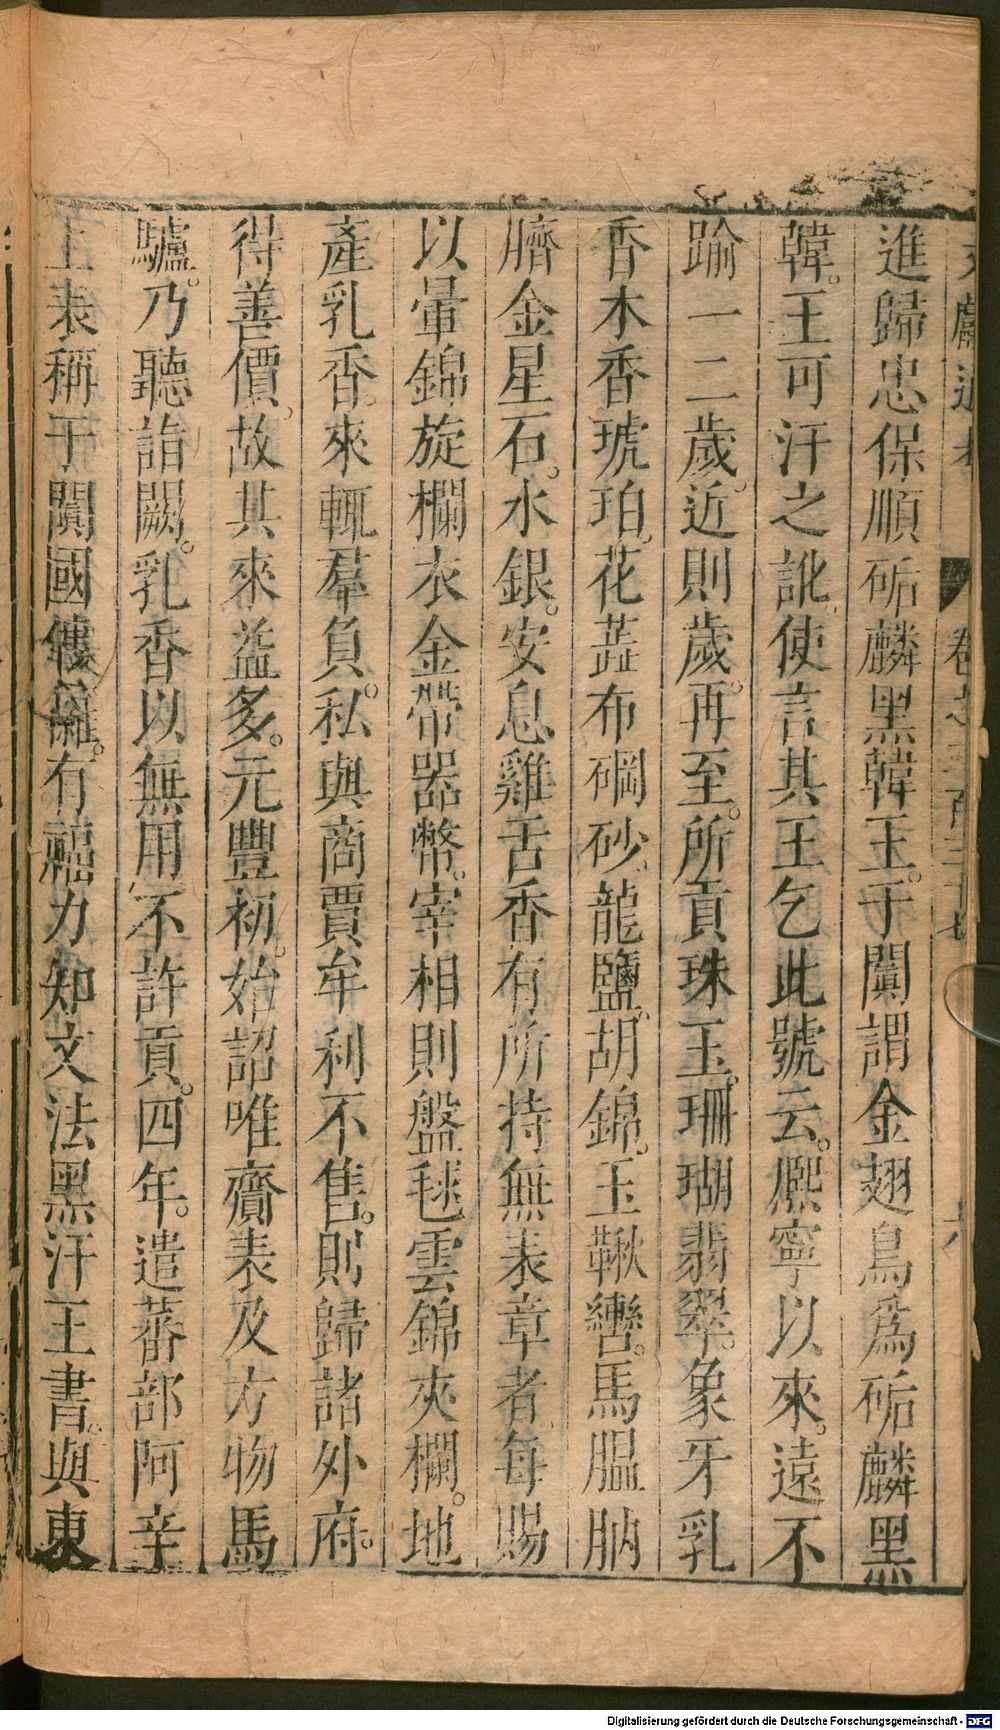 進歸忠保順䂨麟黑韓王。于闐謂金翅鳥爲䂨麟黑
韓。王可汗之訛。使言其王乞此號云。熙寧以來。遠不
踰一二歲。近則歲。再至。所貢珠玉。珊瑚翡翠。象牙乳
香木香琥珀。花蕋布硇砂。龍鹽。胡錦。玉鞦轡。馬膃肭
臍金星石。水銀。安息雞舌香有所持無表章者。每賜
以暈錦旋襴衣金帶器幣。宰相則盤毬雲錦夾襴。地
產乳香。來輒羣負。私與商賈牟利不售。則歸諸外府。
得善價。故其來益多。元豐初。始詔唯齎表及方物馬
驢。乃聽詣闕。乳香以無用不許貢。四年。遣蕃部阿辛
上表稱于闐國僂儸。有福力知文法黑汗王書。與東
卷之三百三十七
六
Digitalisierung gefördert durch die Deutsche Forschungsgemeinschaft - DFG